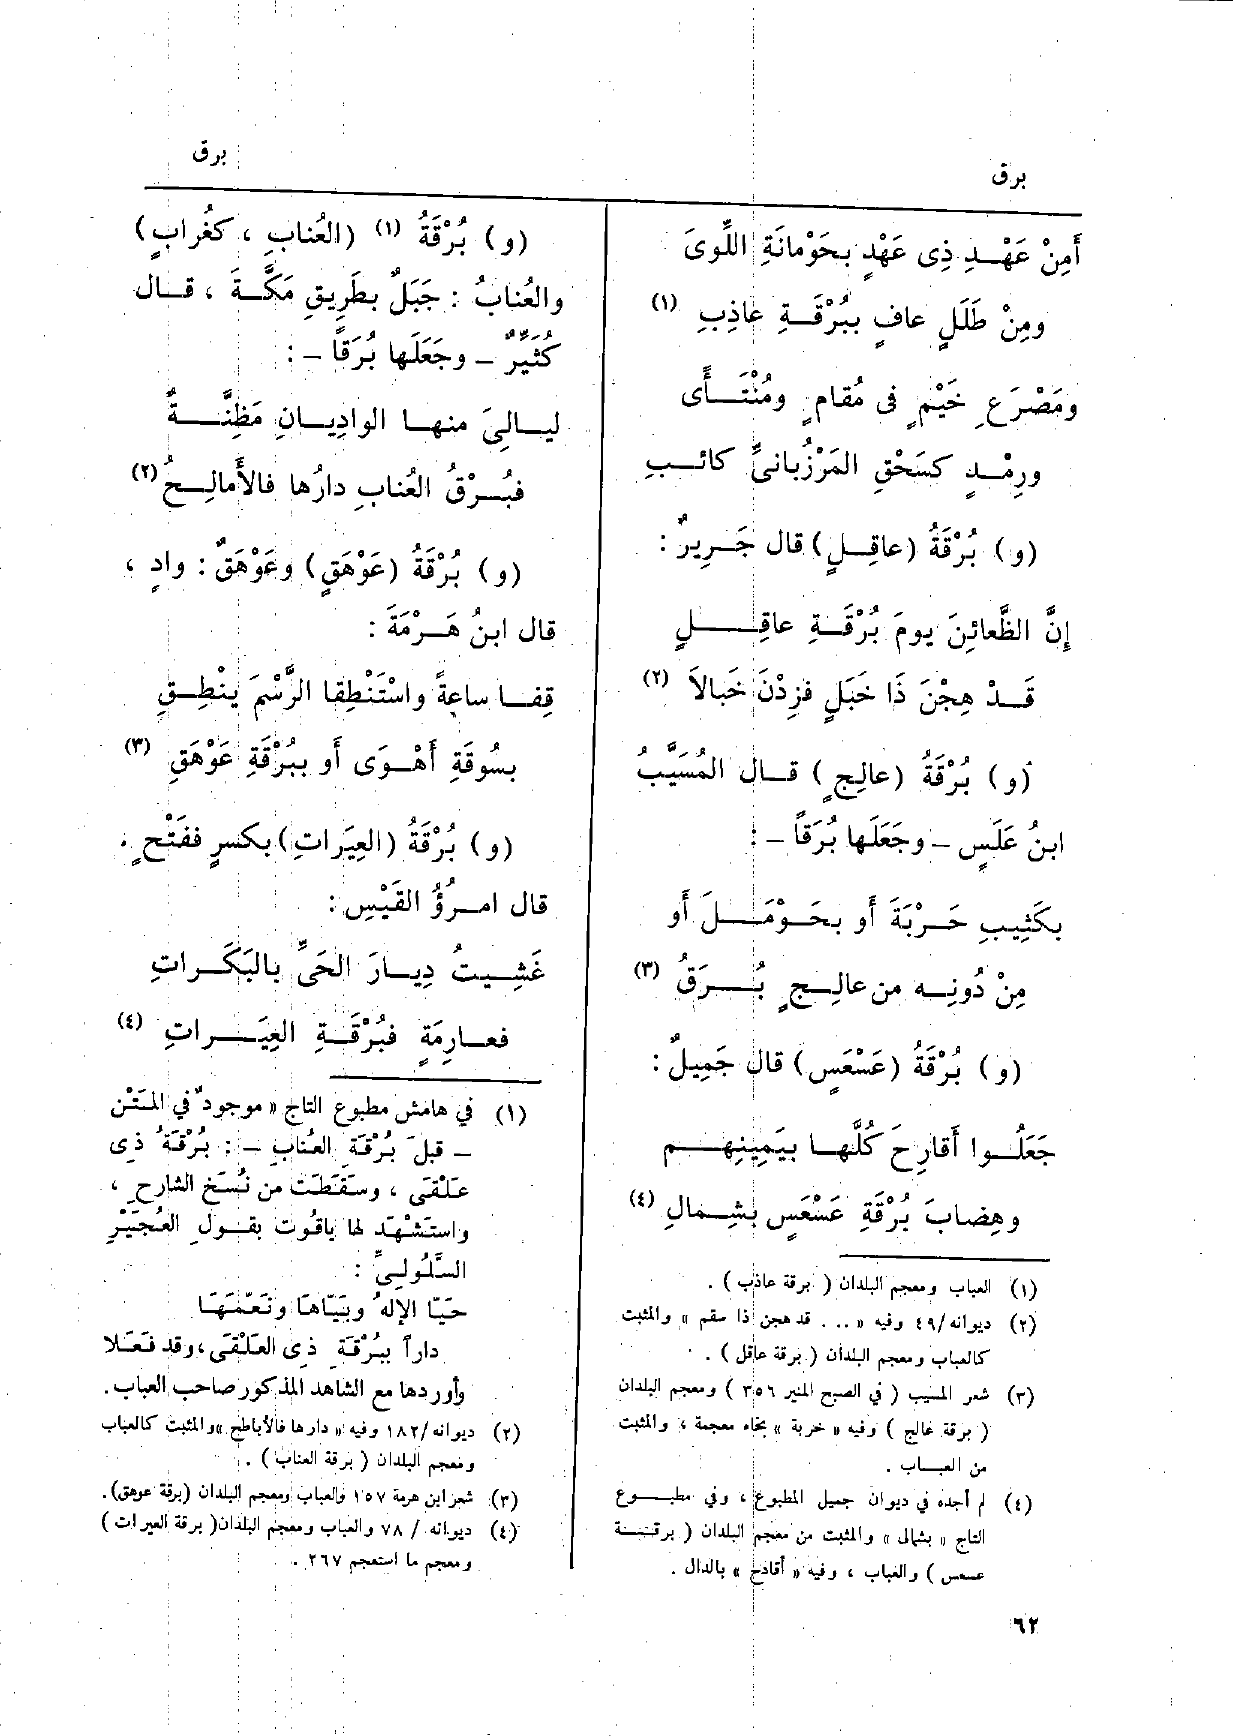 برق
برق
أَمِنْ عَهْـدِ ذِى عَهْدٍ بِحَوْمانَةِ اللِّوَى
ومِنْ طَلَلٍ عافٍ بِبُرْقَـةِ عاذِبِ (١)
ومَصْرَعِ خَيْمٍ فى مُقامٍ ومُنْتَـأًى
ورِمْـدٍ كسَحْقِ المَرْزُبانىِّ كائـبِ
(و) بُرْقَةُ (عاقِـلٍ) قال جَـرِيرٌ :
إِنَّ الظَّعائِنَ يومَ بُرْقَـةِ عاقِـــلٍ
قَـدْ هِجْنَ ذَا خَبَلٍ فَزِدْنَ خَبالاَ (٢)
(و) بُرْقَةُ (عالِجٍ) قـال المُسَيَّبُ
ابنُ عَلَسٍ – وجَعَلَها بُرَقاً – :
بكَثِيبِ حَـرْبَةَ أَو بحَـوْمَـــلَ أَو
مِنْ دُونِـه من عالِـجٍ بُـــرَقُ (٣)
(و) بُرْقَةُ (عَسْعَسٍ) قال جَمِيلٌ :
جَعَلُـوا أَقارِحَ كُلَّهـا بيَمِينِهـــم
وهِضابَ بُرْقَةِ عَسْعَسٍ بشِـمالِ (٤)
(١) العباب ومعجم البلدان ( برقة عاذب ) .
(٢) ديوانه/٤٩ وفيه « .. قد هجن ذا سقم » والمثبت
كالعباب ومعجم البلدان ( برقة عاقل ) .
(٣) شعر المسيب ( في الصبح المنير ٣٥٦ ) ومعجم البلدان
( برقة عالج ) وفيه « خربة » بخاء معجمة ، والمثبت
من العبـاب .
(٤) لم أجده في ديوان جميل المطبوع ، وفي مطبـــوع
التاج « بشمالى » والمثبت من معجم البلدان ( برقـــة
عسعس ) والعباب ، وفيه « أقادح » بالدال .
(و) بُرْقَةُ (١) (العُنابِ ، كغُرابٍ)
والعُنابُ : جَبَلٌ بطَرِيقِ مَكَّـةَ ، قـال
كُثَيِّرٌ – وجَعَلَها بُرَقاً – :
ليـالِىَ منهـا الوادِيـانِ مَظِنَّـــةٌ
فبُـرْقُ العُنابِ دارُها فالأَمالِـحُ (٢)
(و) بُرْقَةُ (عَوْهَقٍ) وعَوْهَقٌ : وادٍ ،
قال ابنُ هَـرْمَةَ :
قِفـا ساعةً واسْتَنْطِقا الرَّسْمَ يَنْطِـقِ
بسُوقَةِ أَهْـوَى أَو ببُرْقَةِ عَوْهَقِ (٣)
(و) بُرْقَةُ (العِيَراتِ) بكسرٍ ففَتْحٍ .
قال امـرُؤُ القَيْسِ :
غَشِـيتُ دِيـارَ الحَىِّ بالبَكَـراتِ
فعـارِمَةٍ فبُرْقَـةِ العِيَـــراتِ (٤)
(١) في هامش مطبوع التاج « موجودٌ في المَتْن
– قبلَ بُرْقَةِ العُنابِ – : بُرْقَةُ ذِى
عَلْقَى ، وسَقَطَت من نُسَخ الشارحِ ،
واستَشْهَد لها ياقُوت بقَـول العُجَيْرِ
السَّلُولىِّ :
حَيّا الإلهُ وبَيّاهَا ونَعَّمَهَا
داراً ببُرْقَةِ ذِى العَلْقَى ، وقد فَعَلا
وأوردها مع الشاهد المذكور صاحب العباب.
(٢) ديوانه/١٨٢ وفيه « دارها فالأباطح » والمثبت كالعباب
ومعجم البلدان ( برقة العناب ) .
(٣) شعر ابن هرمة ١٥٧ والعباب ومعجم البلدان (برقة عوهق).
(٤) ديوانه / ٧٨ والعباب ومعجم البلدان( برقة العيرات )
ومعجم ما استعجم ٢٦٧ .
٦٢